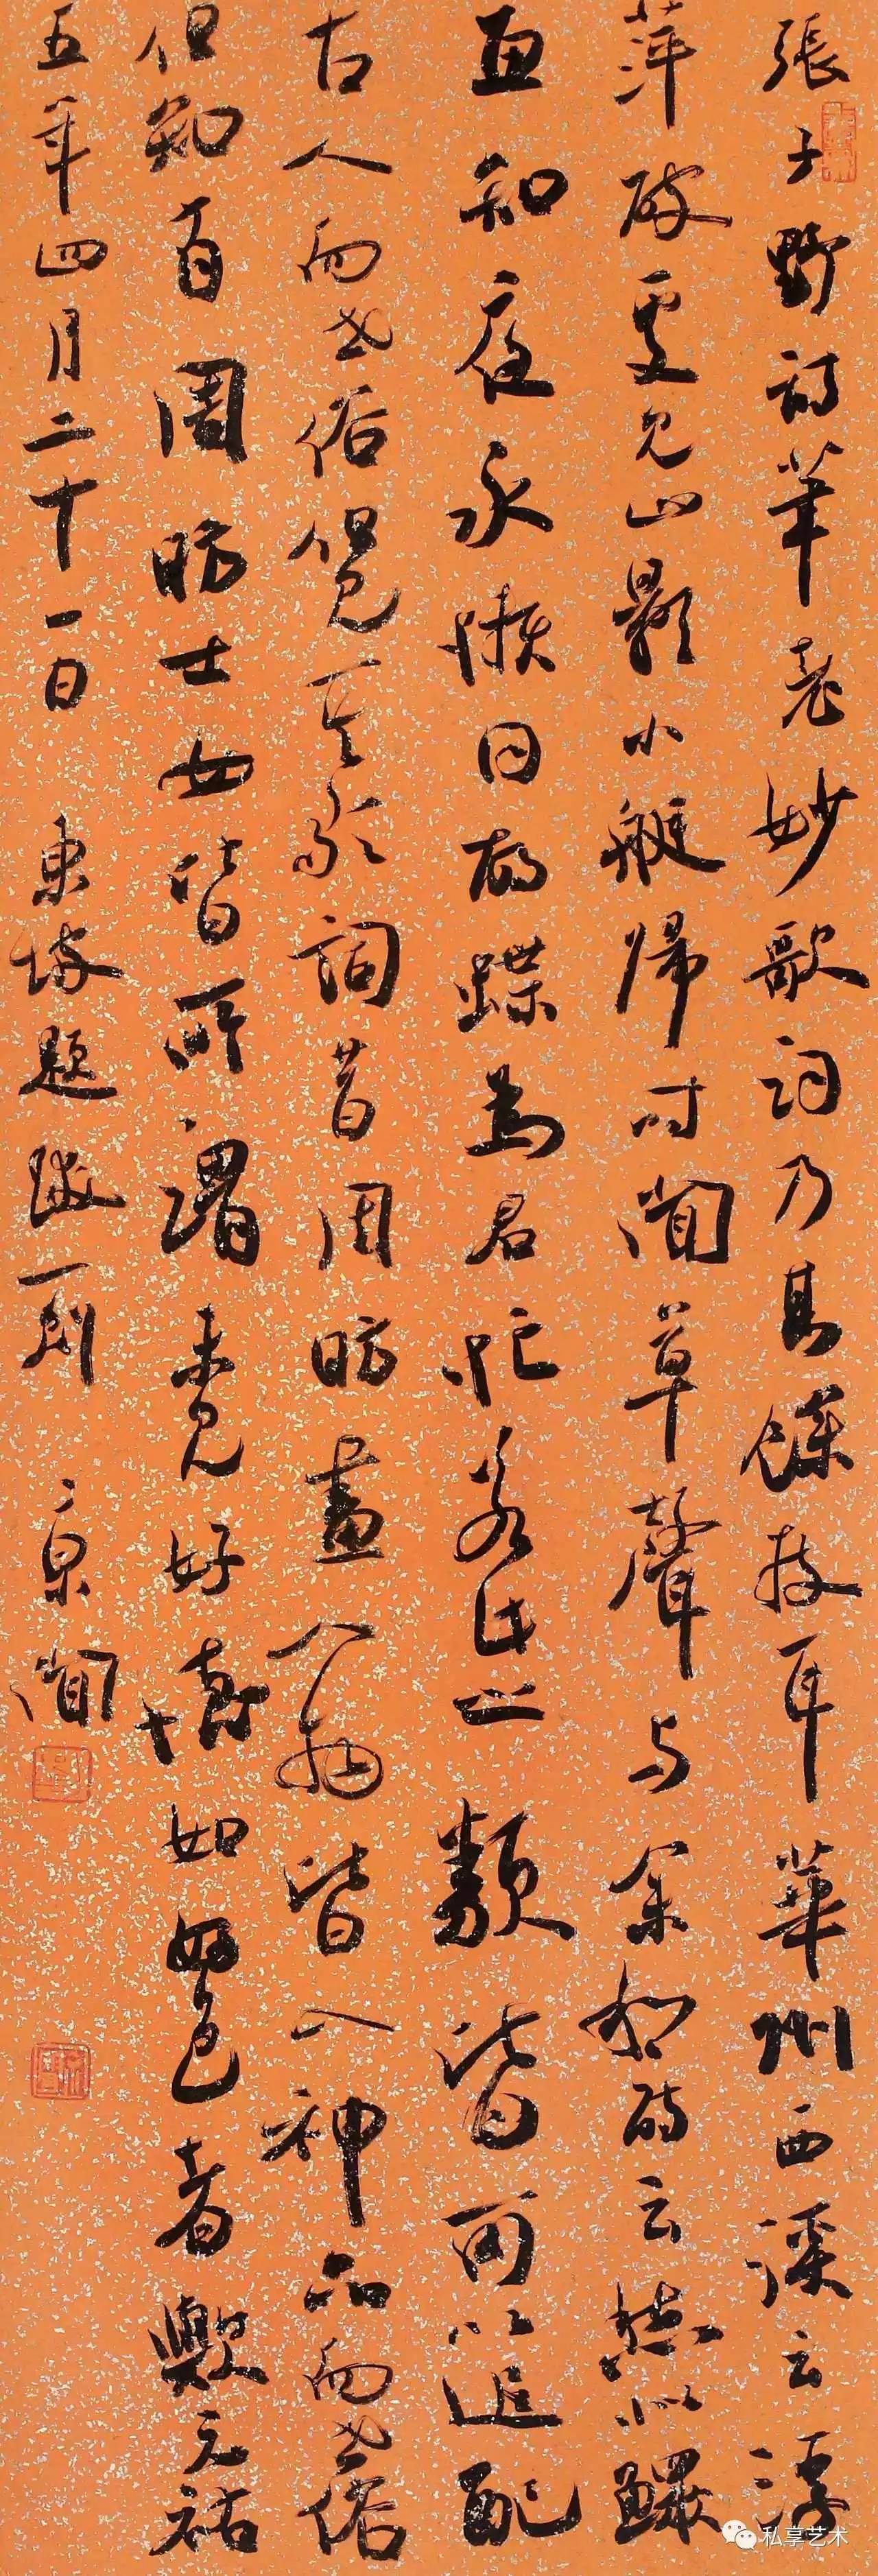 張子野詩筆老妙歌詞乃其餘技耳華州西溪云浮
萍破處見山影小艇歸時聞草聲與余和詩云愁似鰥
魚知夜永懶同胡蝶為君忙若此之類皆可以追配
古人而世俗但見其歌詞昔周昉畫人物皆入神品而世俗
但知有周昉士女皆所謂未見好德如好色者歟元祐
五年四月二十一日 東坡題跋一則 京聞
私享艺术